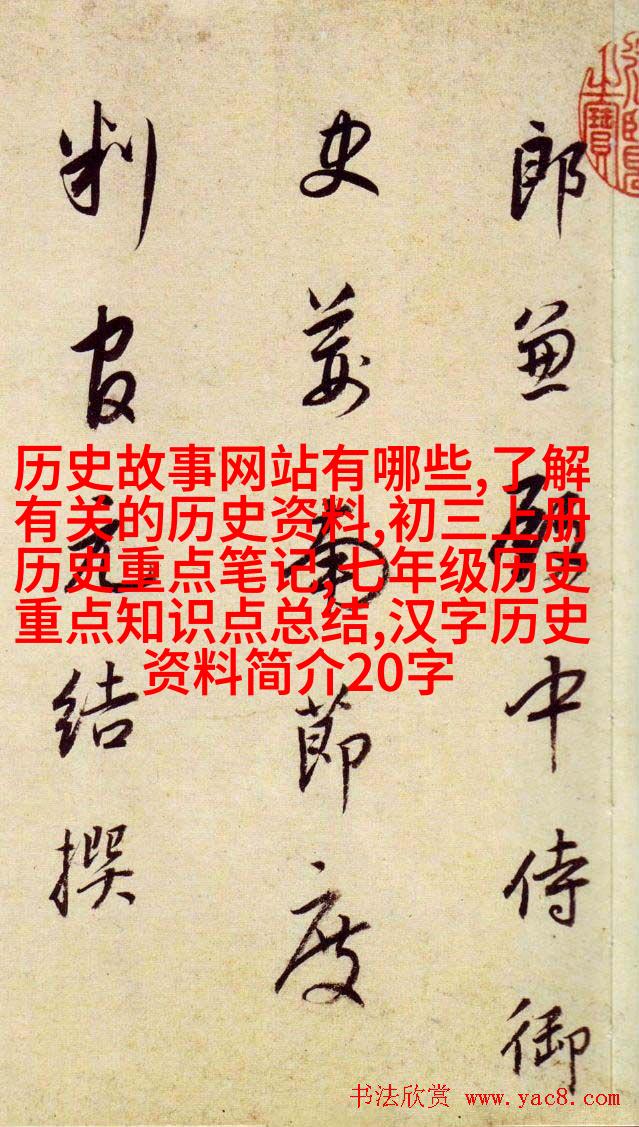 郎兼殿中侍御
史荆南節度
判官元结撰
历史故事网站有哪些,了解
有关的历史资料,初三上册
历史重点笔记,七年级历史
重点知识点总结,汉字历史
资料简介20字
书法欣赏 www.yac8.com